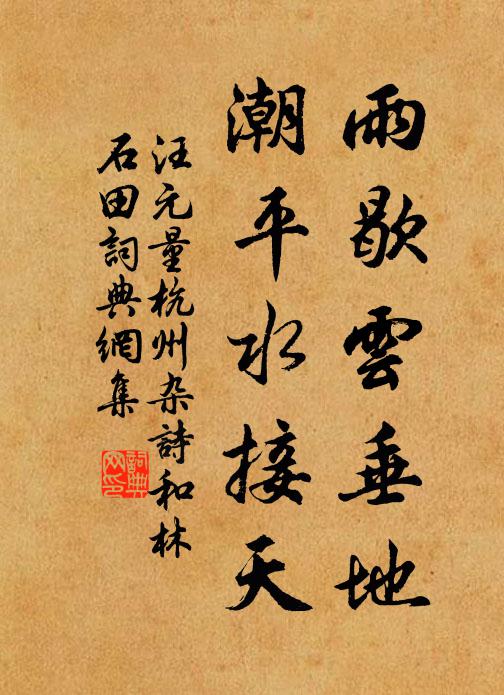 雨歇雲垂地
潮平水接天
汪元量杭州杂詩和林
石田詞典網集
詞典
网印